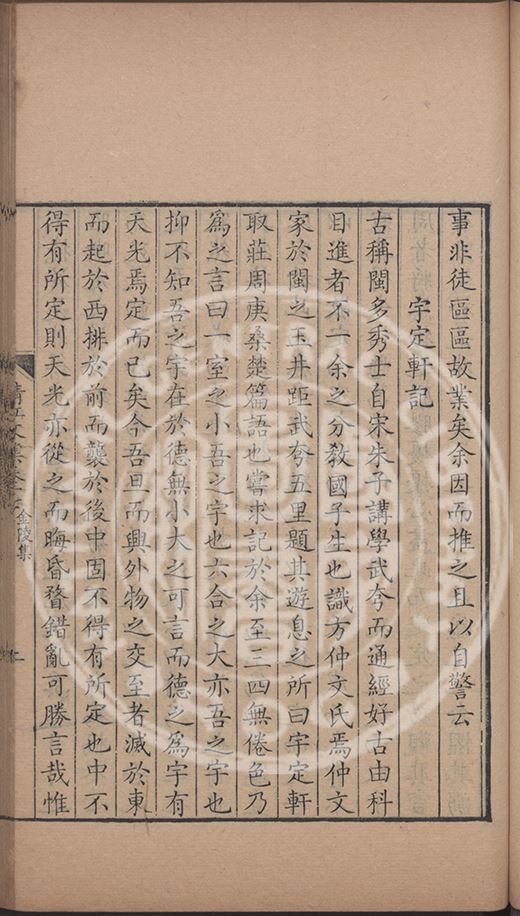 事非徒區區故業矣余因而推之且以自警云
宇定軒記
古稱閩多秀士自宋朱子講學武夸而通經好古由科
目進者不一余之分敎國子生也識方仲文氏焉仲文
家於閩之玉井距武夸五里題其遊息之所曰宇定軒
取莊周庚桑楚篇語也嘗求記於余至三四無倦色乃
爲之言曰一室之小吾之宇也六合之大亦吾之宇也
抑不知吾之宇在於德無小大之可言而德之爲宇有
天光焉定而已矣今吾旦而興外物之交至者滅於東
而起於西排於前而襲於後中固不得有所定也中不
得有所定則天光亦從之而晦昏瞀錯亂可勝言哉惟
金陵集